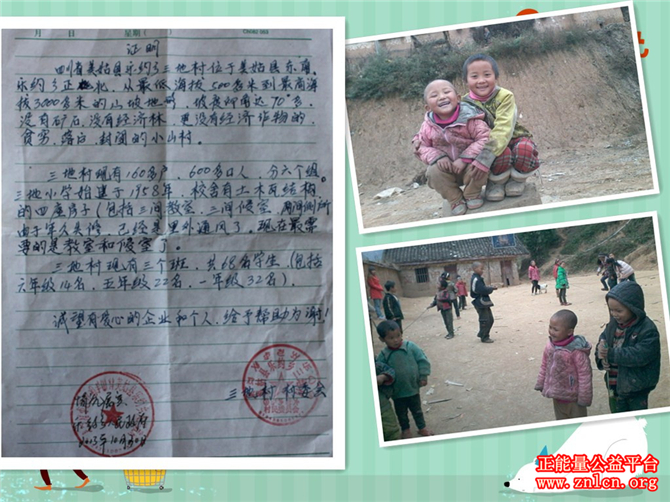 月 日 星期( )
证明
四川省美姑县乐约乡三地村位于美姑县东南
乐约乡正北。从最低海拔500多米到最高海
拔3000多米的山坡地带,坡度仰角达70°多,
没有矿石,没有经济林,更没有经济作物的,
贫穷、落后、封闭的小山村。
三地村现有160多户,600多口人,分六个组。
三地小学始建于1958年,校舍有土木瓦结构
的四座房子(包括三间教室、三间寝室、两间厕所
由于年久失修,已经是里外通风了。现在最需
要的是教室和寝室了。
三地村现有三个班,共68名学生(包括
六年级14名,五年级22名,一年级32名)。
诚望有爱心的企业和个人,给予帮助为谢!
三地村 村委会
情况属实
2013年10月
正能量公益平台
www.znlcn.org